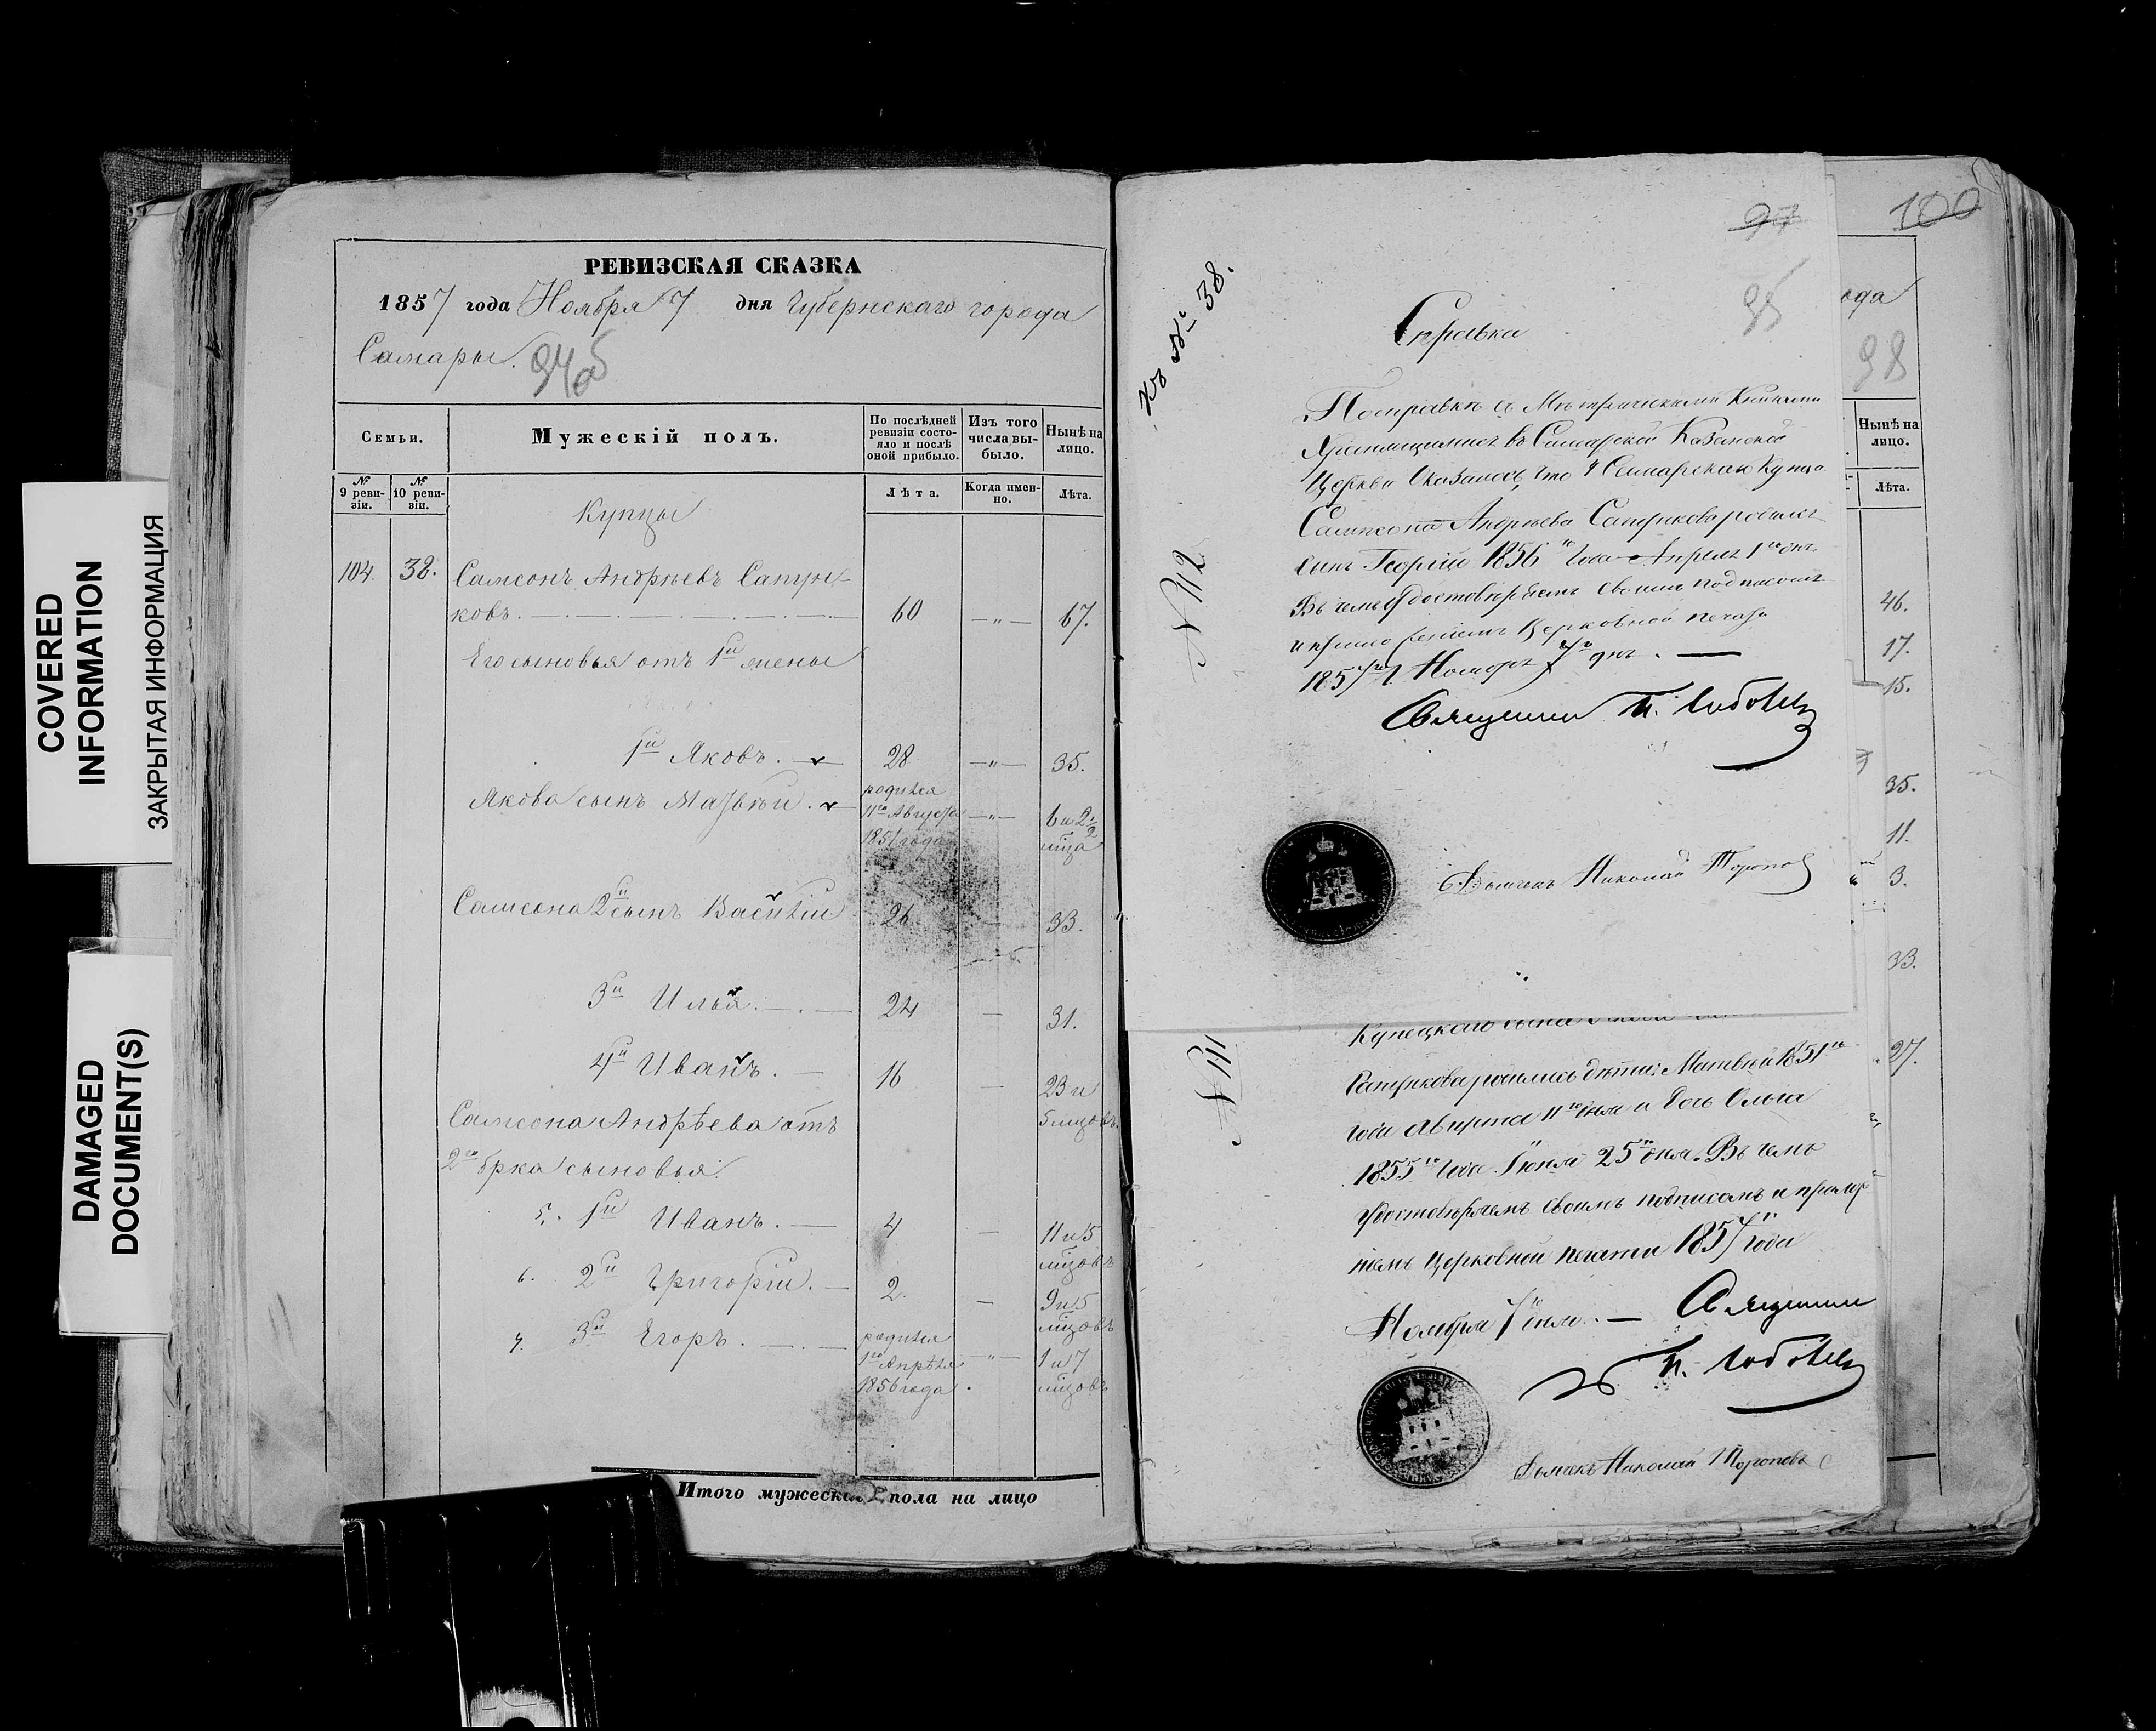 COVERED
INFORMATION
ЗАКРЫТАЯ ИНФОРМАЦИЯ
DAMAGED
DOCUMENT(S)
РЕВИЗСКАЯ СКАЗКА
1857 года Ноября 7 дня Губернскаго города
Самары.
94об
Семьи.
Мужескій полъ.
По послѣдней ревизіи состояло и послѣ оной прибыло.
Изъ того числа выбыло.
Нынѣ на лицо.
№ 9 ревизіи.
№ 10 ревизіи.
Лѣта.
Когда именно.
Лѣта.
Купцы
104. 38. Самсонъ Андрѣевъ Сапун-
ковъ. 60 — " — 67.
Его сыновья отъ 1й жены
1й Яковъ. 28 — " — 35.
Якова сынъ Матвѣй. родился 11го Августа 1851 года — " — 6 и 2 1/2 мѣца
Самсона 2й сынъ Василій 26 — 33.
3й Илья. 24 — 31.
4й Иванъ. 16 — 23 и 5 мцовъ.
Самсона Андрѣева отъ
2го брка сыновья:
5. 1й Иванъ. 4 — 11 и 5 мцовъ
6. 2й Григорій. 2. — 9 и 5 мцовъ
7. 3й Егоръ. родился 1го Апрѣля 1856 года. — " — 1 и 7 мцовъ
Итого мужеска пола на лицо
97
95
Къ № 38.
N 112
Справка
По справкѣ съ Метрическими Книгами
Хранящимися въ Самарской Казанской
Церкви Оказалось, что у Самарскаго Купца
Сампсона Андрѣева Сапункова родился
сынъ Георгій 1856го Года Апреля 1го дня
Въ чемъ удостовѣряемъ своимъ подписомъ
и приложеніемъ Церковной печати
1857го г. Ноября 7го дня. —
Священникъ
Дьячекъ Николай Торопов
N 111
Купецкого сына
Сапункова родились дѣти: Матвѣй 1851го
года Августа 11го дня и дочь Ольга
1855го года Іюня 25го дня. Въ чемъ
удостовѣряемъ своимъ подписомъ и прилож
ніемъ Церковной печати 1857 года
Ноября 7го дня. — Священникъ
Дьячекъ Николай Тороповъ
100
ода
98
Нынѣ на лицо.
Лѣта.
46.
17.
15.
35.
11.
3.
33.
27.